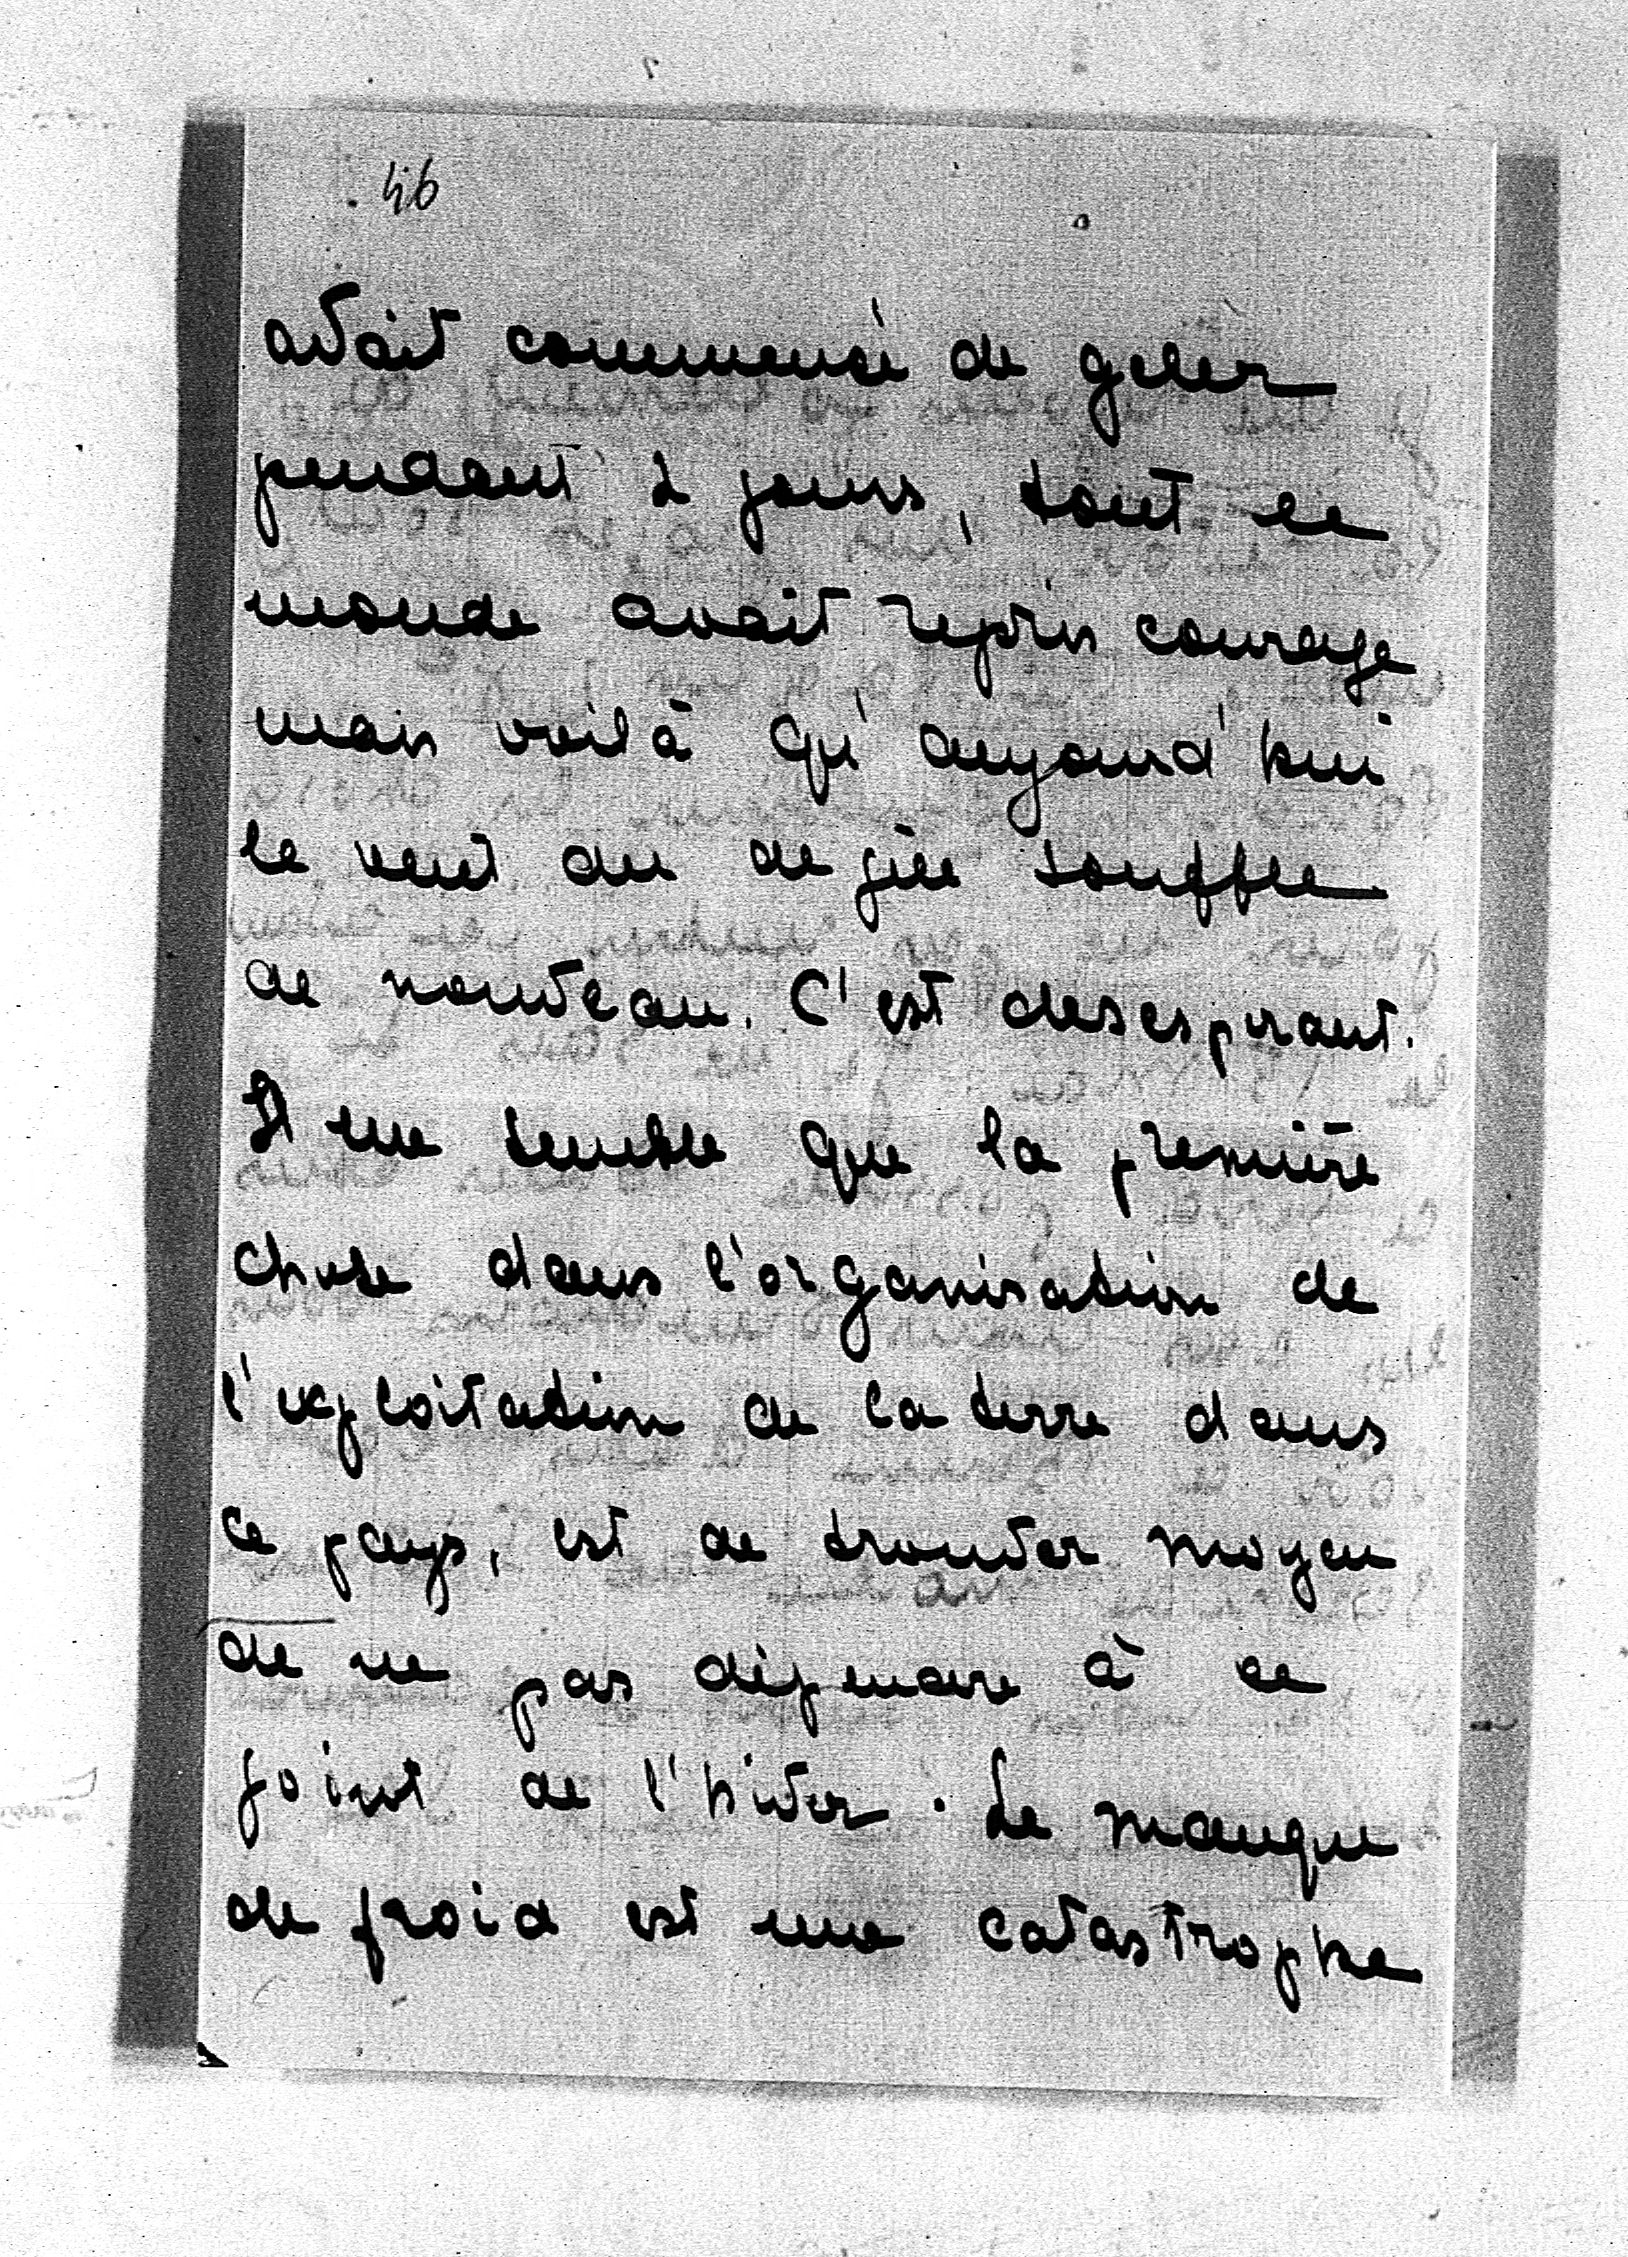 46
avait commencé de geler
pendant 2 jours, tout le
monde avait repris courage
mais voilà qu'aujourd'hui
le vent du dégèle souffle
de nouveau. C'est desesperant.
Il me semble que la première
chose dans l'organisation de
l'exploitation de la terre dans
ce pays, est de trouver moyen
de ne pas dépendre à ce
point de l'hiver. Le manque
de froid est une catastrophe